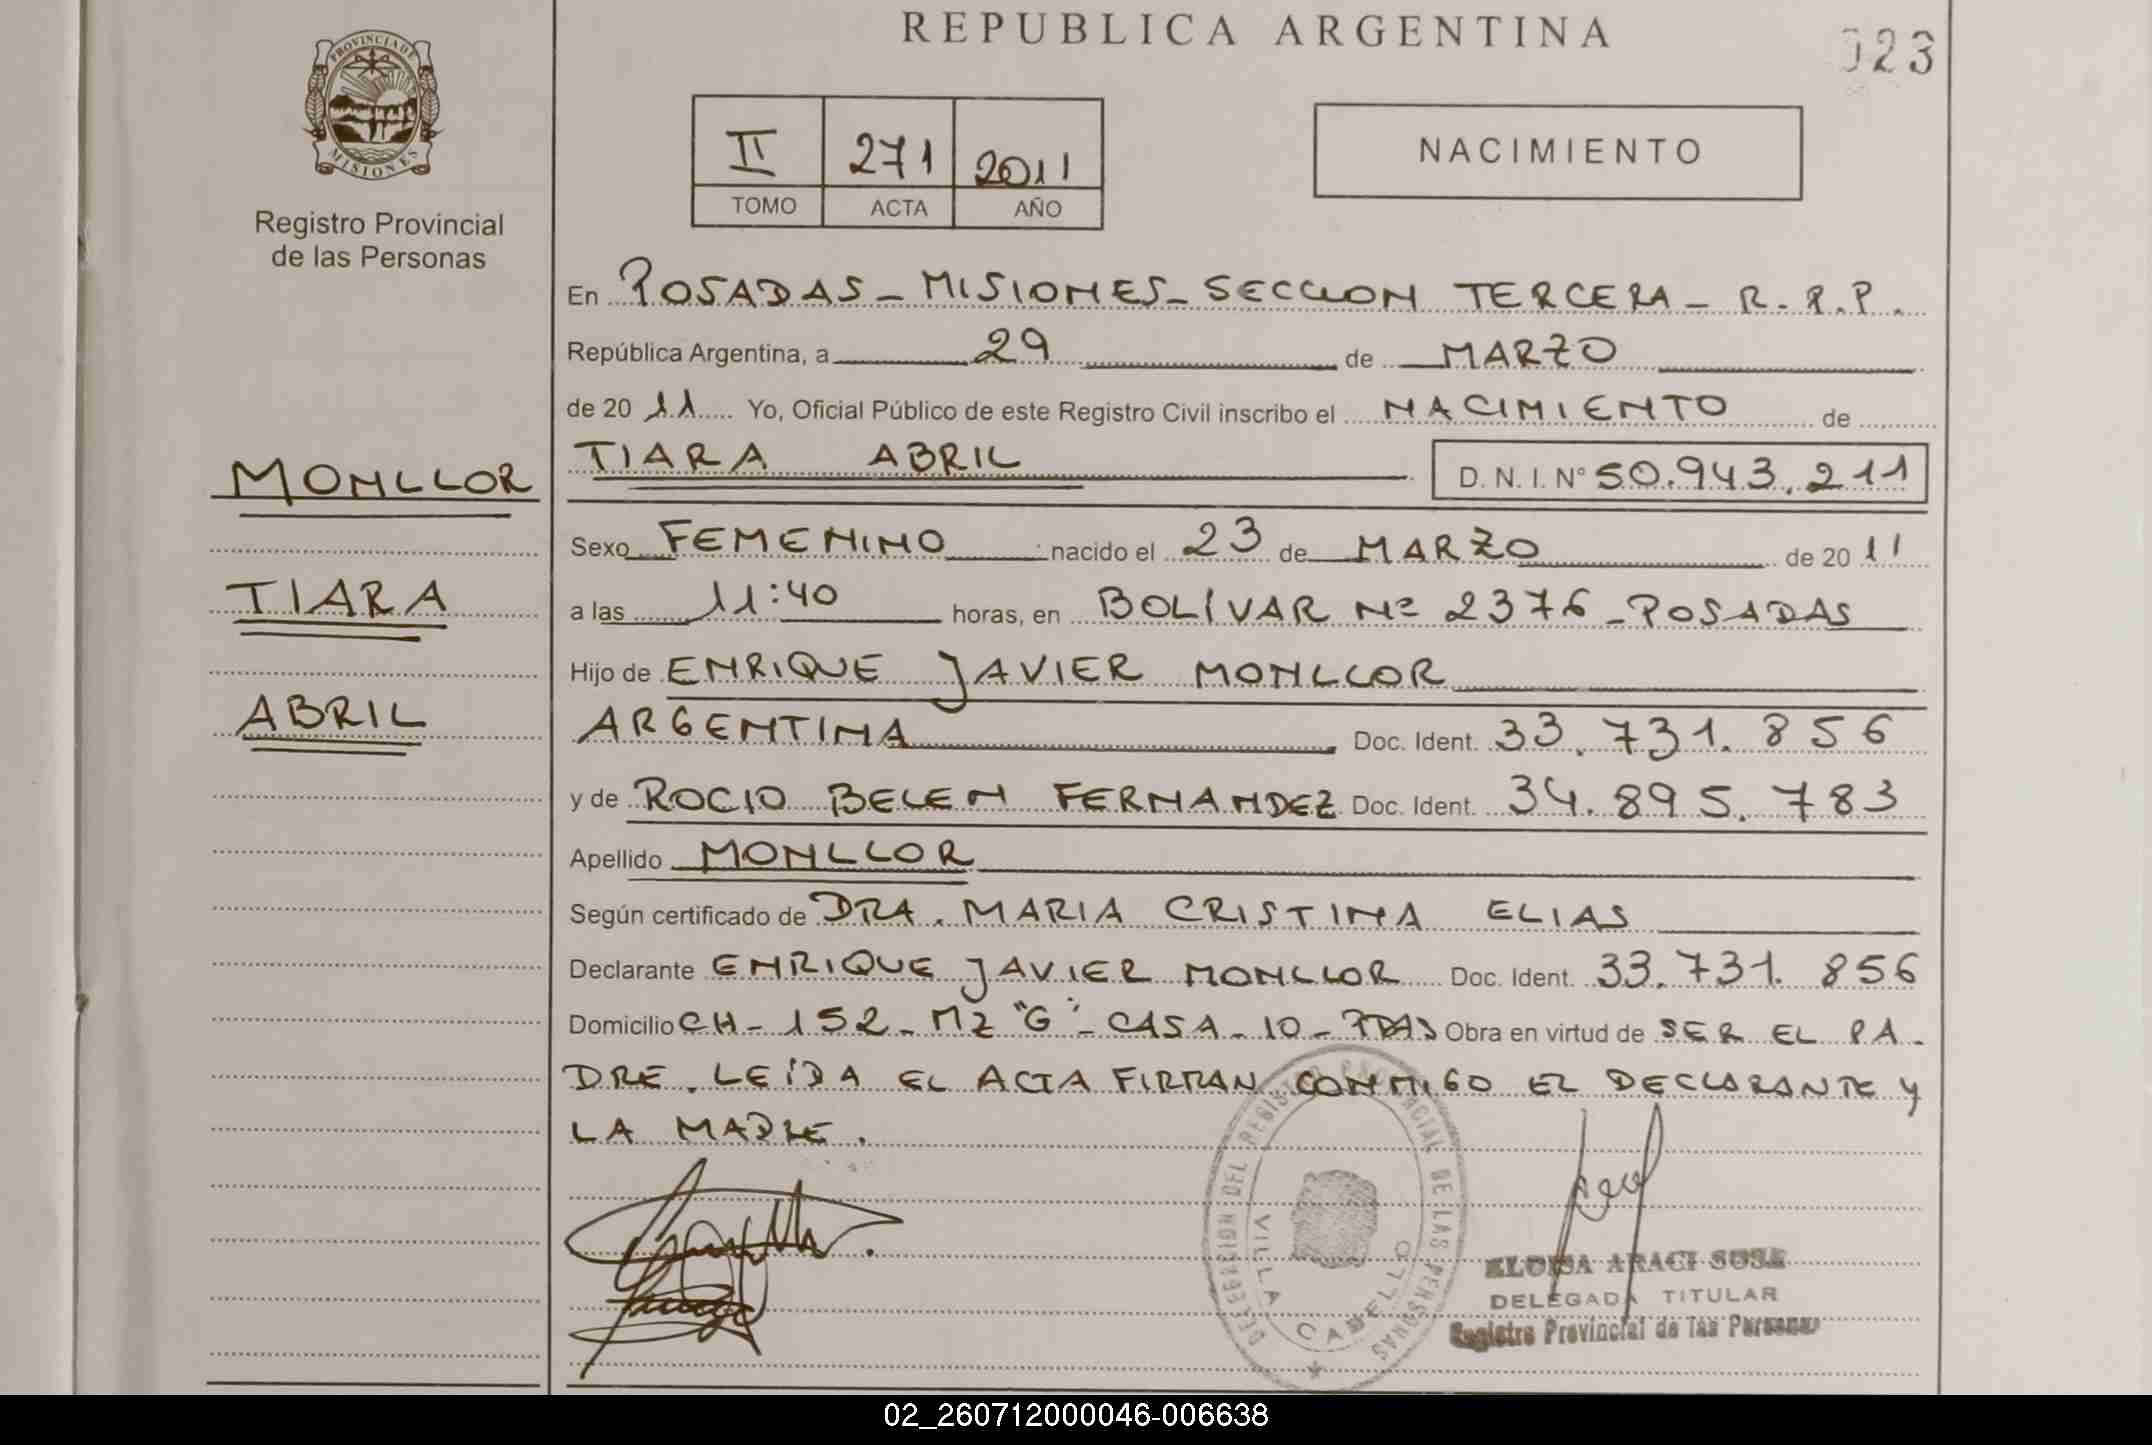 REPUBLICA ARGENTINA
023
PROVINCIA DE
MISIONES
Registro Provincial
de las Personas
II 271 2011
TOMO ACTA AÑO
NACIMIENTO
En POSADAS - MISIONES - SECCION TERCERA - R.R.P.
República Argentina, a 29 de MARZO
de 20 11 Yo, Oficial Público de este Registro Civil inscribo el NACIMIENTO de
MONLLOR
TIARA ABRIL D. N. I. N° 50.943.211
Sexo FEMENINO nacido el 23 de MARZO de 20 11
TIARA
a las 11:40 horas, en BOLÍVAR Nº 2376 - POSADAS
Hijo de ENRIQUE JAVIER MONLLOR
ABRIL
ARGENTINA Doc. Ident. 33.731.856
y de ROCIO BELEN FERNANDEZ Doc. Ident. 34.895.783
Apellido MONLLOR
Según certificado de DRA. MARIA CRISTINA ELIAS
Declarante ENRIQUE JAVIER MONLLOR Doc. Ident. 33.731.856
Domicilio CH - 152 - MZ "G" - CASA - 10 - PDAS Obra en virtud de SER EL PA-
DRE. LEÍDA EL ACTA FIRMAN CONMIGO EL DECLARANTE Y
LA MADRE.
DELEGACION DEL REGISTRO PROVINCIAL DE LAS PERSONAS
VILLA CABELLO
ELOISA ARACI SOSA
DELEGADA TITULAR
Registro Provincial de las Personas
02_260712000046-006638